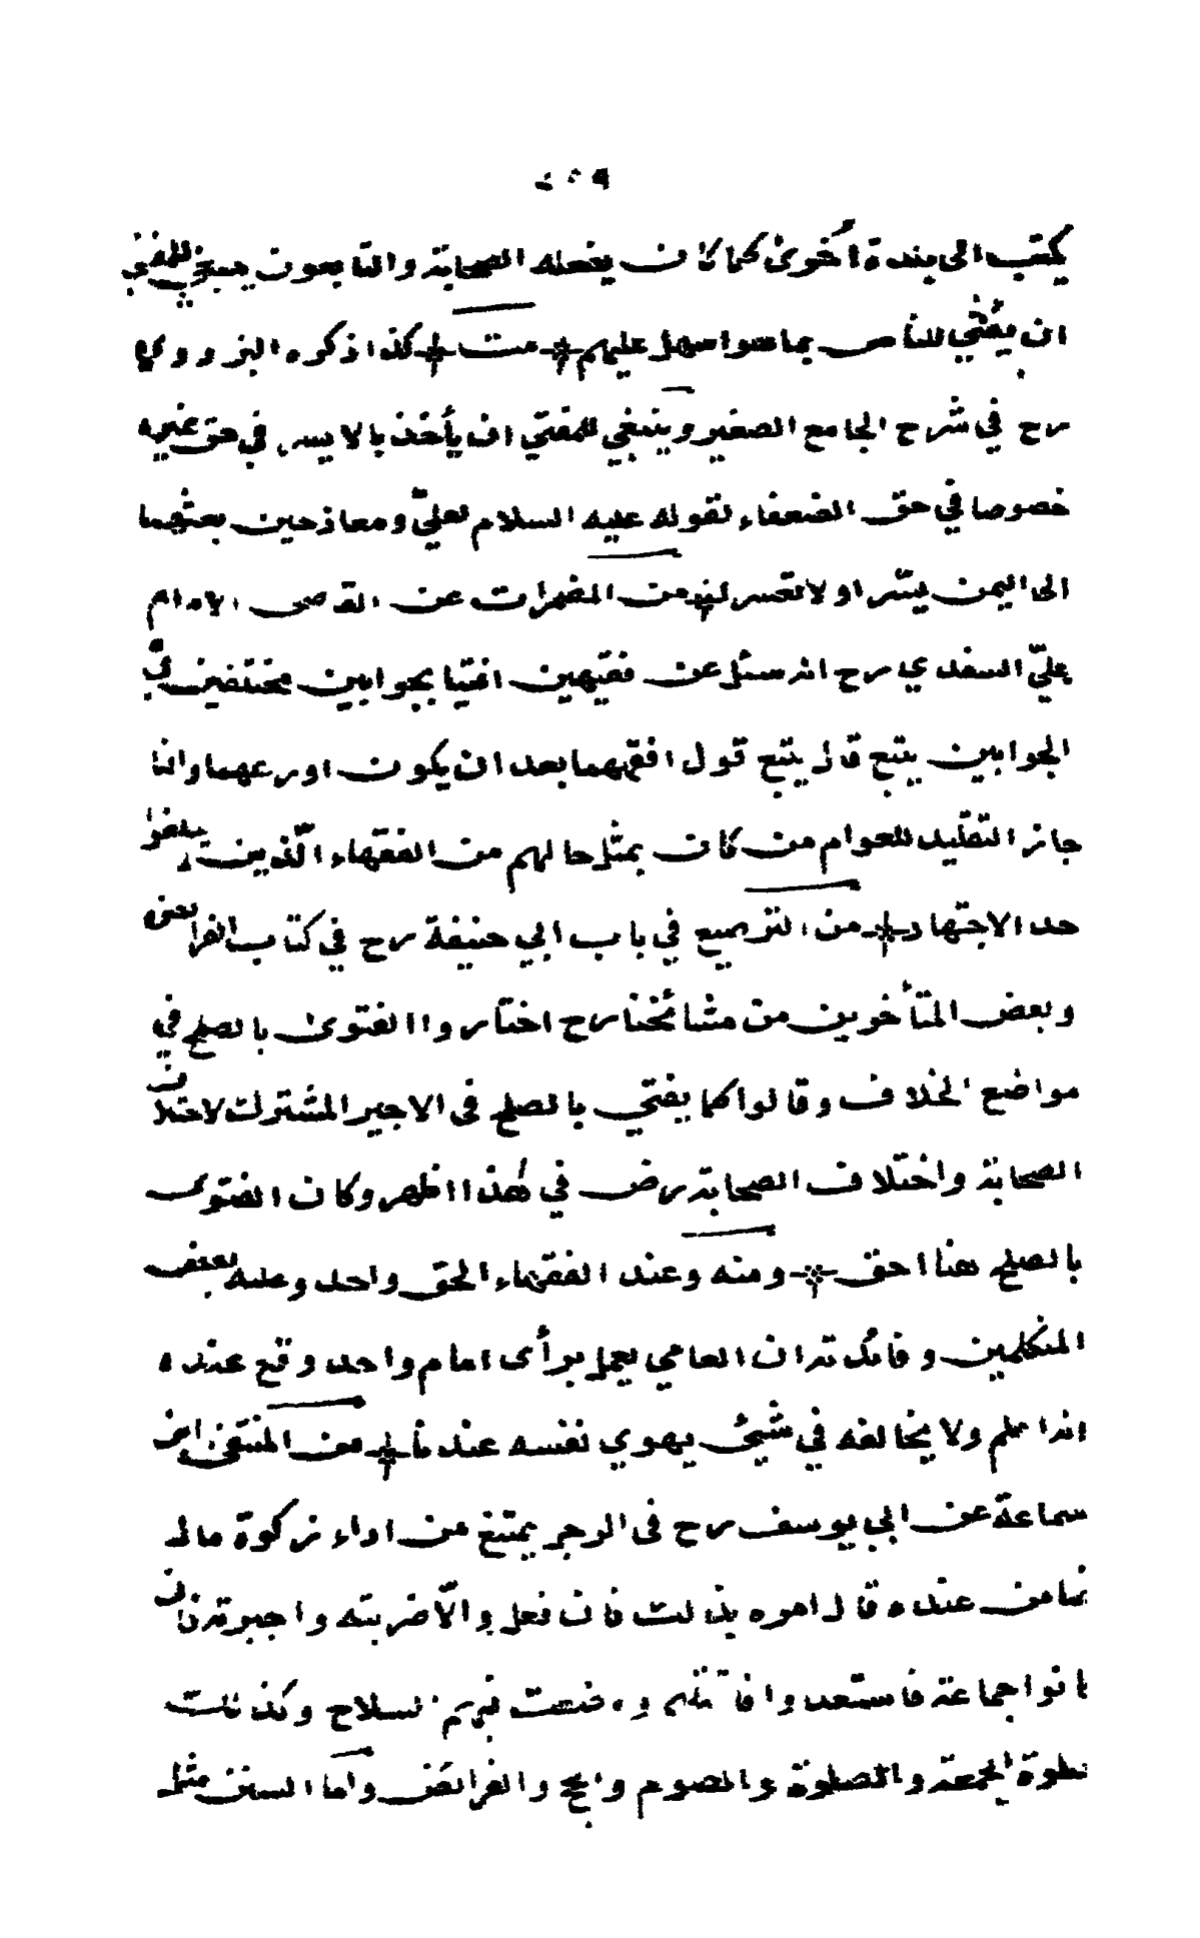 يكتب الى بلدة أخرى كما كان يفعله الصحابة والتابعون ينبغي للمفتي
ان يفتي للناس بما هوا سهل عليهم كذا ذكره البزدوي
رح في شرح الجامع الصغير وينبغي للمفتي ان يأخذ بالايسر في حق غيره
خصوصا في حق الضعفاء لقوله عليه السلام لعليّ ومعاذ حين بعثهما
الى اليمن يسّرا ولا تعسرا من المضمرات عن القاضى الامام
عليّ السغدي رح انه سئل عن فقيهين افتيا بجوابين مختلفين
الجوابين يتبع قال يتبع قول افقههما بعد ان يكون اورعهما وانما
جاز التقليد للعوام من كان بمثل حالهم من الفقهاء الّذين يبلغوا
حد الاجتهاد من الترجيع في باب ابي حنيفة رح في كتاب الفرائض
وبعض المتأخرين من مشائخنا رح اختاروا الفتوى بالصلح في
مواضع الخلاف وقالوا كما يفتي بالصلح فى الاجير المشترك لاختلاف
الصحابة واختلاف الصحابة رض في هذا اظهر وكان الفتوى
بالصلح هنا احق ومنه وعند الفقهاء الحق واحد وعليه بعض
المتكلمين وفائدته ان العامي يعمل برأى امام واحد وقع عنده
انه اعلم ولا يخالفه في شيئ يهوي نفسه عندنا من المنتقى ابن
سماعة عن ابي يوسف رح فى الرجل يمتنع من اداء زكوة ماله
عنده قال امره بذلك فان فعل والّا ضربته واجبرته فان
كانوا جماعة فاستعدوا السلاح وكذلك
الجمعة والصلوة والصوم والحج والفرائض واما السنن مثل